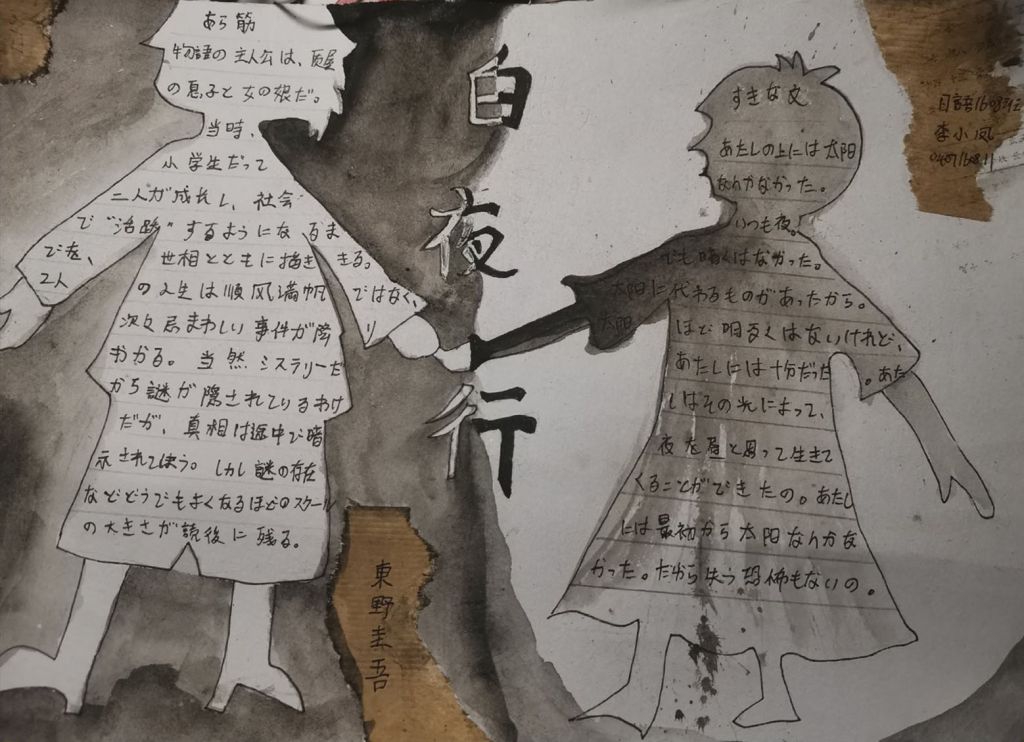 あら筋
物語の主人公は、质屋
の息子と女の娘だ。
当時、
小学生だって
二人が成長し、社会
で"活路"するようになるま
でを、世相とともに描ききる。
2人の人生は順风満帆ではなく、
次々忌まわしい事件が降り
かかる。当然ミステリーだ
から謎が隠されているわけ
だが、真相は途中で暗
示されてしまう。しかし謎の存在
などどうでもよくなるほどのスケール
の大きさが読後に残る。
白夜行
東野圭吾
すきな文
あたしの上には太阳
なんかなかった。
いつも夜。
でも暗くはなかった。
太阳に代わるものがあったから。
太阳ほど明るくはないけれど、
あたしには十分だった。あた
しはその光によって、
夜を昼と思って生きて
くることができたの。あたし
には最初から太阳なんかな
かった。だから失う恐怖もないの。
李小凤